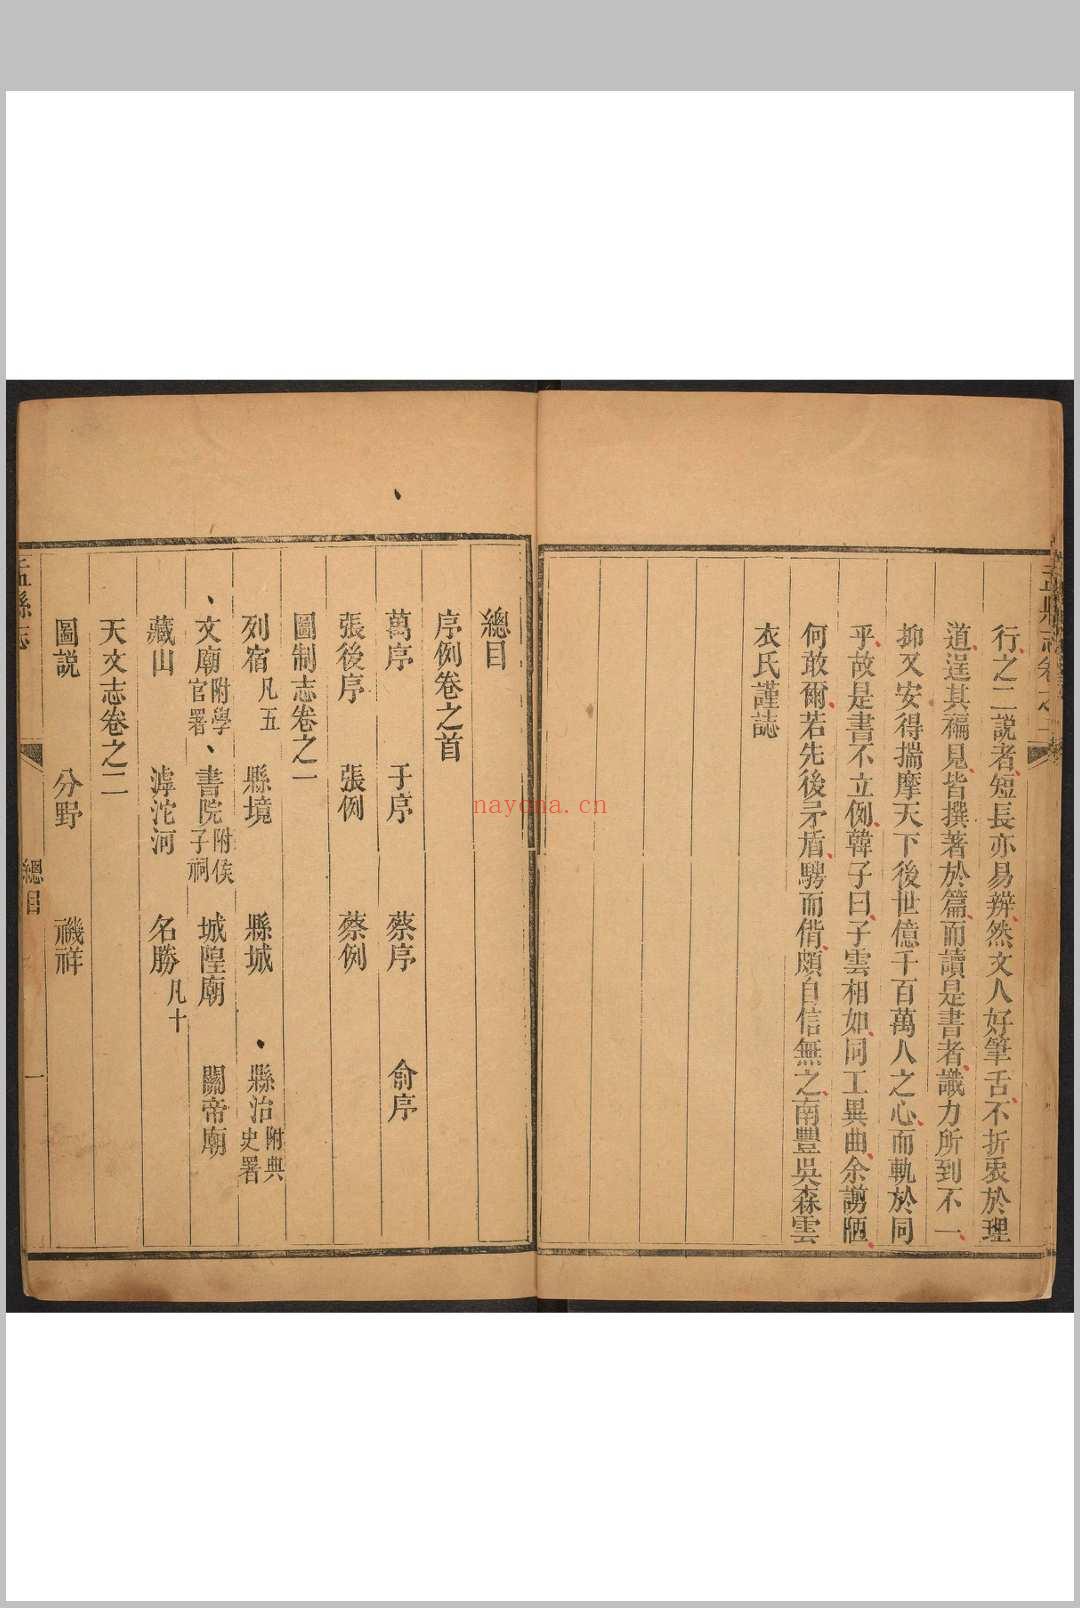 行之二說者短長亦易辨然文人好筆舌不折衷於理
道逞其褊見皆撰著於篇而讀是書者識力所到不一
抑又安得揣摩天下後世億千百萬人之心而軌於同
乎故是書不立例韓子曰子雲相如同工異曲余謭陋
何敢爾若先後矛盾騁而偕頗自信無之南豐吳森雲
衣氏謹誌
總目
序例卷之首
萬序 于序 蔡序 俞序
張後序 張例 蔡例
圖制志卷之一
列宿凡五 縣境 縣城 縣治附典史署
文廟附學官署 書院附俟子祠 城隍廟 關帝廟
藏山 滹沱河 名勝凡十
天文志卷之二
圖說 分野 禨祥
盂縣志 總目 一
nayona.cn